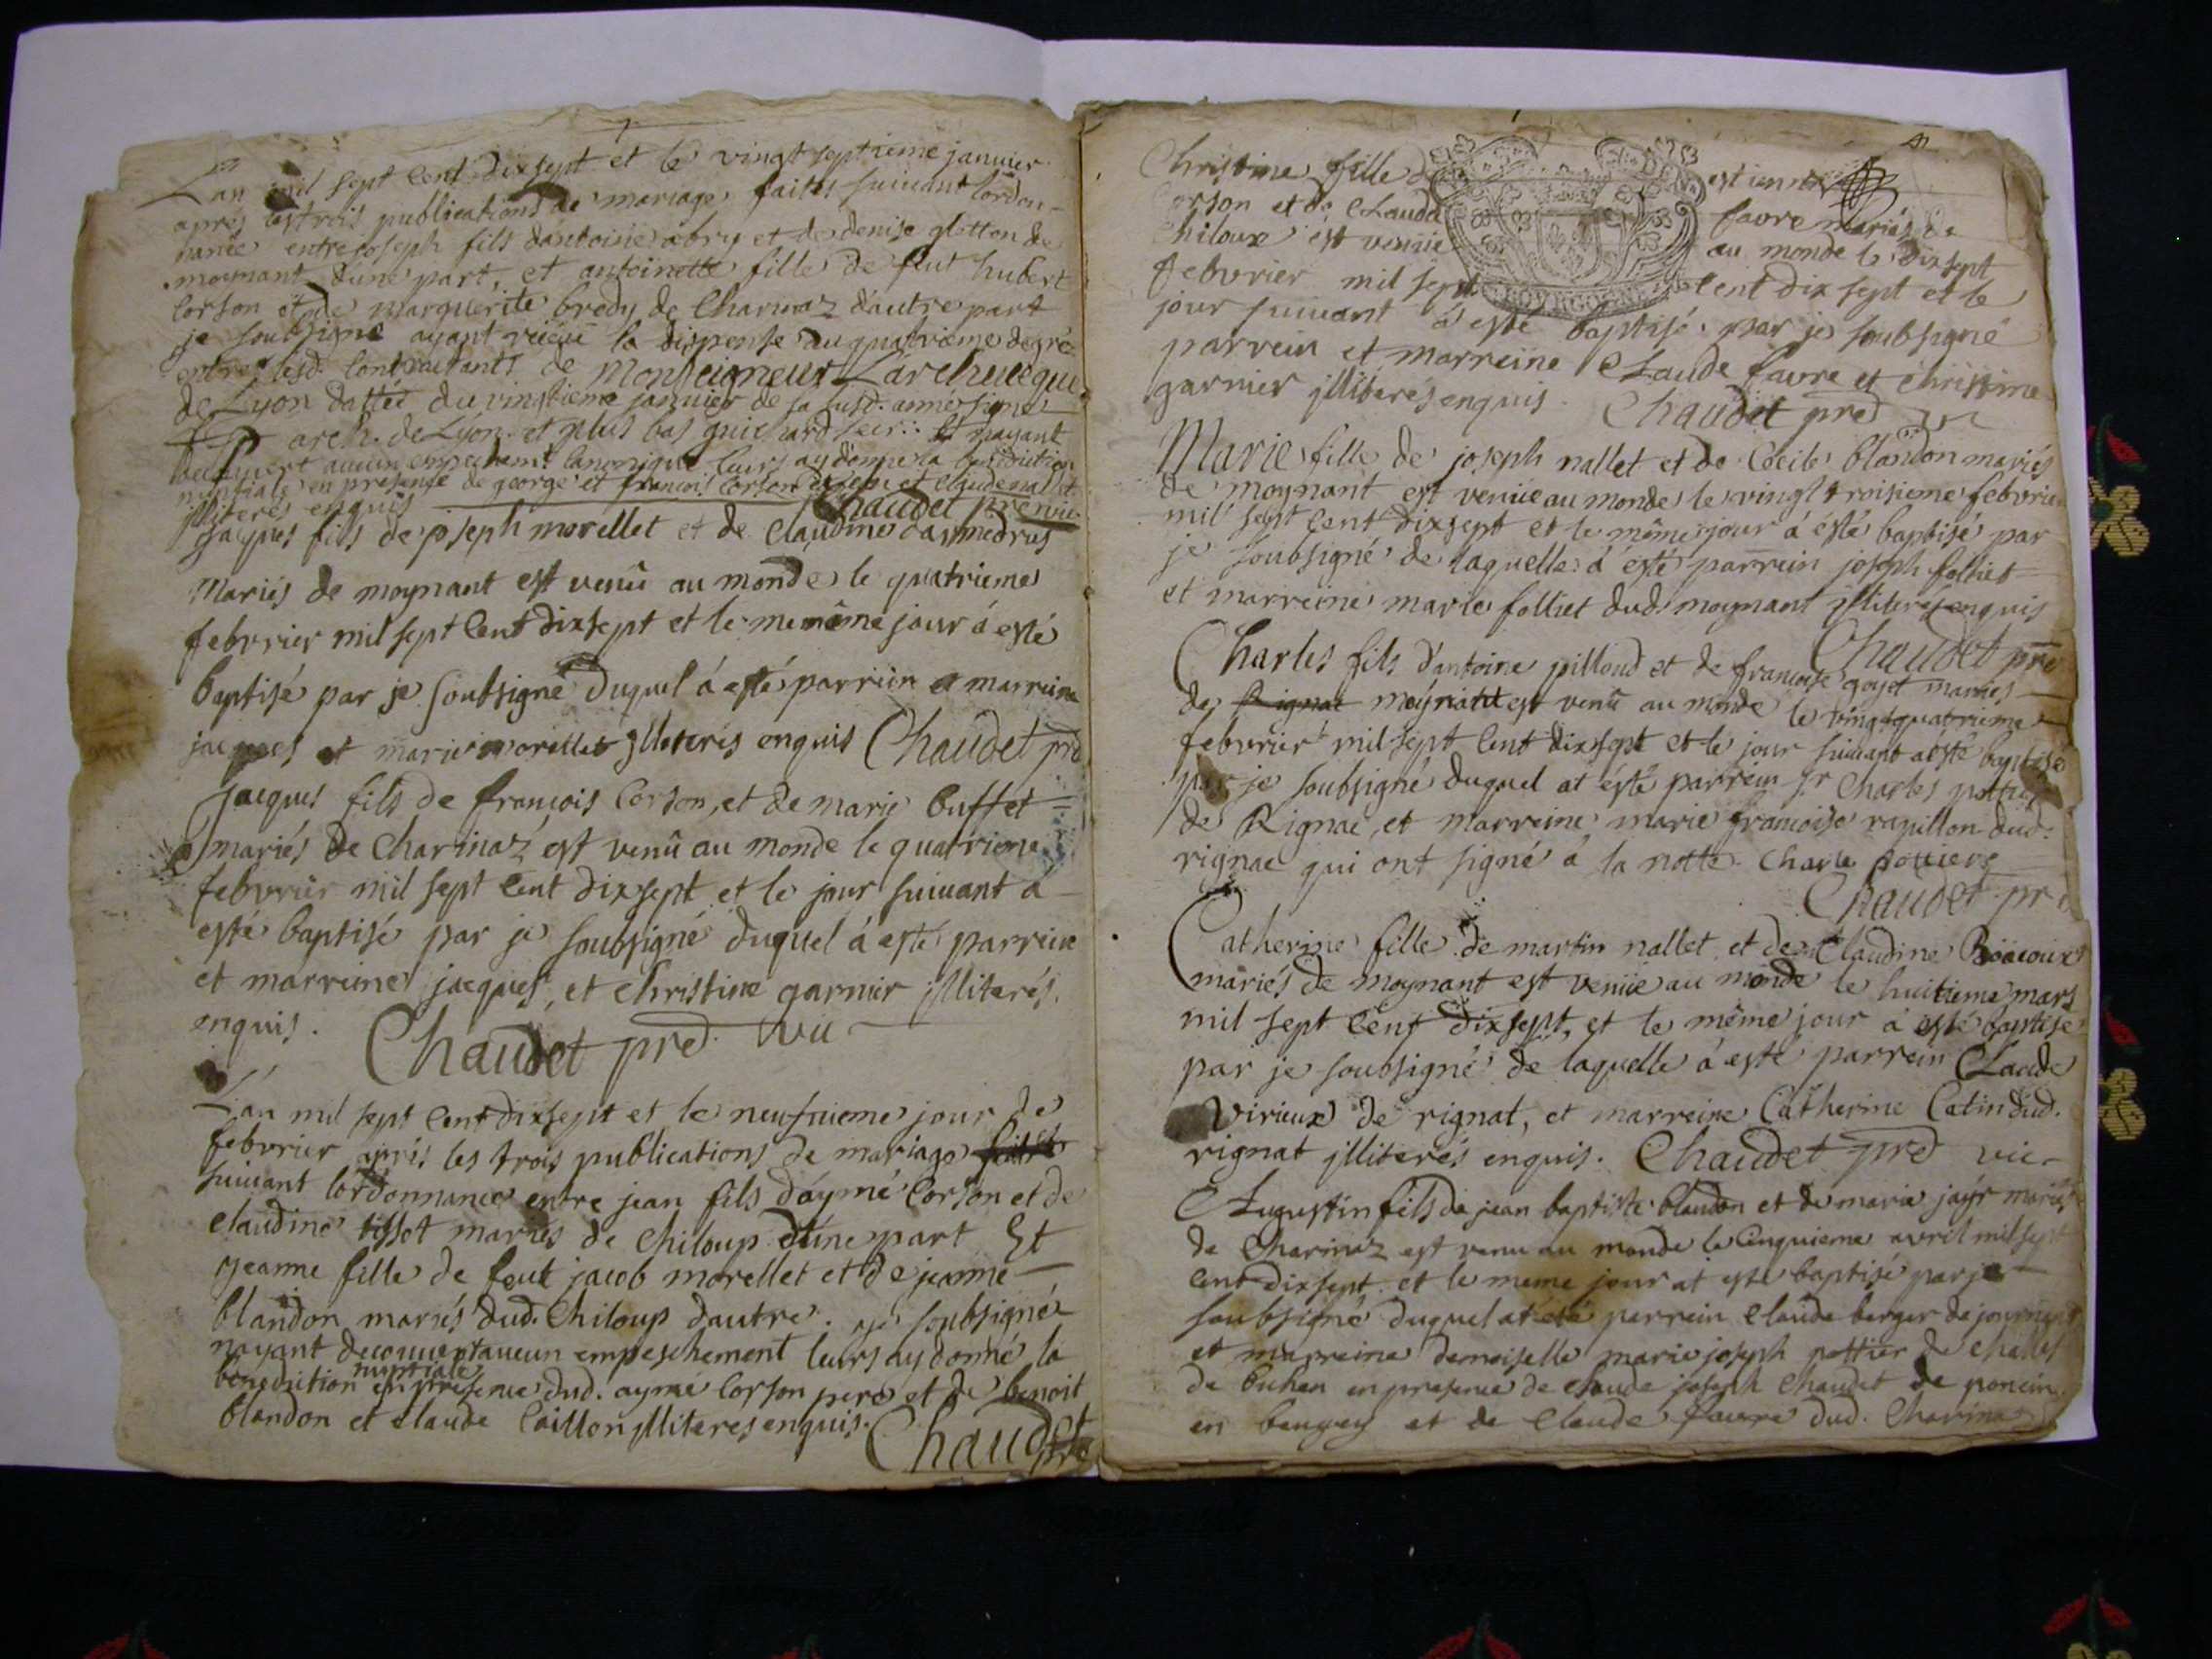 Lan mil sept cent dixsept et le vingt septieme janvier
apres les trois publications de mariage faites suivant lordon-
nance entre joseph fils dantoine abry et de denise gletton de
moynant dune part, et antoinette fille de feut hubert
corson et de marguerite bredy de Charinaz dautre part
je soubsigné ayant reçeu la dispense du quatrieme degré
entre lesd. contractants de Monseigneur Larcheveque
de Lyon dattée du vingtieme janvier de la susd. année signé
arch. de Lyon. et plus bas guichard secr. et nayant
decouvert aucun empechemt. canonique leurs ay donné la benediction
nuptiale en presence de george et francois Corson et claude nallet
jlliteres enquis Chaudet pre vic
jacques fils de joseph morellet et de claudine
Mariés de moynant est venû au monde le quatrieme
febvrier mil sept cent dixsept et le memême jour á esté
baptisé par je soubsigné duquel á esté parrein et marreine
jacques et marie morellet jlliterés enquis Chaudet prē
jacques fils de francois Corson, et de marie buffet =
mariés de Charinaz est venû au monde le quatrieme
febvrier mil sept cent dixsept et le jour suivant á
esté baptisé par je soubsigné duquel á esté parrein
et marreine jacques, et Christine garnier jlliterés.
enquis. Chaudet pred. vic
L'an mil sept cent dixsept et le neufvieme jour de
febvrier aprés les trois publications de mariage faites
suivant lordonnance entre jean fils d'aymé Corson et de
claudine tissot mariés de Chiloup d'une part Et
jeanne fille de feut jacob morellet et de jeanne
blandon mariés dud. Chiloup dautre. je soubsigné
nayant decouvert aucun empeschement leurs ay donné la
benediction nuptiale en presence dud. aymé Corson pere et de benoit
blandon et claude Caillon jlliteres enquis. Chaudet
pre
Christine fille de estienne
Corson et de Clauda favre mariés de
Chiloux est venüe au monde le dixsept
febvrier mil sept cent dix sept et le
jour suivant á esté baptisé par je soubsigné
parrein et marreine Claude favre et christine
garnier jlliterés enquis. Chaudet pred vic
Marie fille de joseph nallet et de Cecile blandon mariés
de moynant est venüe au monde le vingt troisieme febvrier
mil sept cent dixsept et le même jour á ésté baptisé par
je soubsigné de laquelle á esté parrein joseph folliet
et marreine marie folliet dud. moynant jlliteres enquis
Chaudet prē
Charles fils d'antoine pilloud et de francoise goyet mariés
de Rignat moynant est venû au monde le vingtquatrieme
febvrier mil sept cent dixsept et le jour suivant a esté baptisé
par je soubsigné duquel at esté parrein sr Charles
de Rignac, et marreine marie francoise ravillon dud.
rignac qui ont signé á la notte. Charle pottiers
Chaudet pre
Catherine fille de martin nallet et de Claudine
mariés de moynant est venüe au monde le huitieme mars
mil sept cent dixsept, et le même jour á esté baptisé
par je soubsigné de laquelle á esté parrein Claude
Virieux de rignat, et marreine Catherine Catin dud.
rignat jlliterés enquis. Chaudet pred vic
Augustin fils de jean baptiste blandon et de marie jayr mariés
de Charinaz est venu au monde le Cinquieme avril mil sept
cent dixsept et le meme jour at esté baptisé par je
soubsigné duquel at eté parrein Claude berger de
et marreine demoiselle marie joseph pottier de
de buhen en presence de claude joseph Chaudet de poncin
en beugey et de Claude favre dud. Charinaz